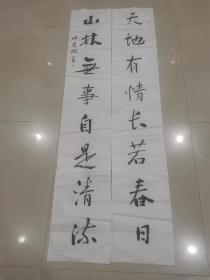 天地有情长若春日
山林無事自是清流